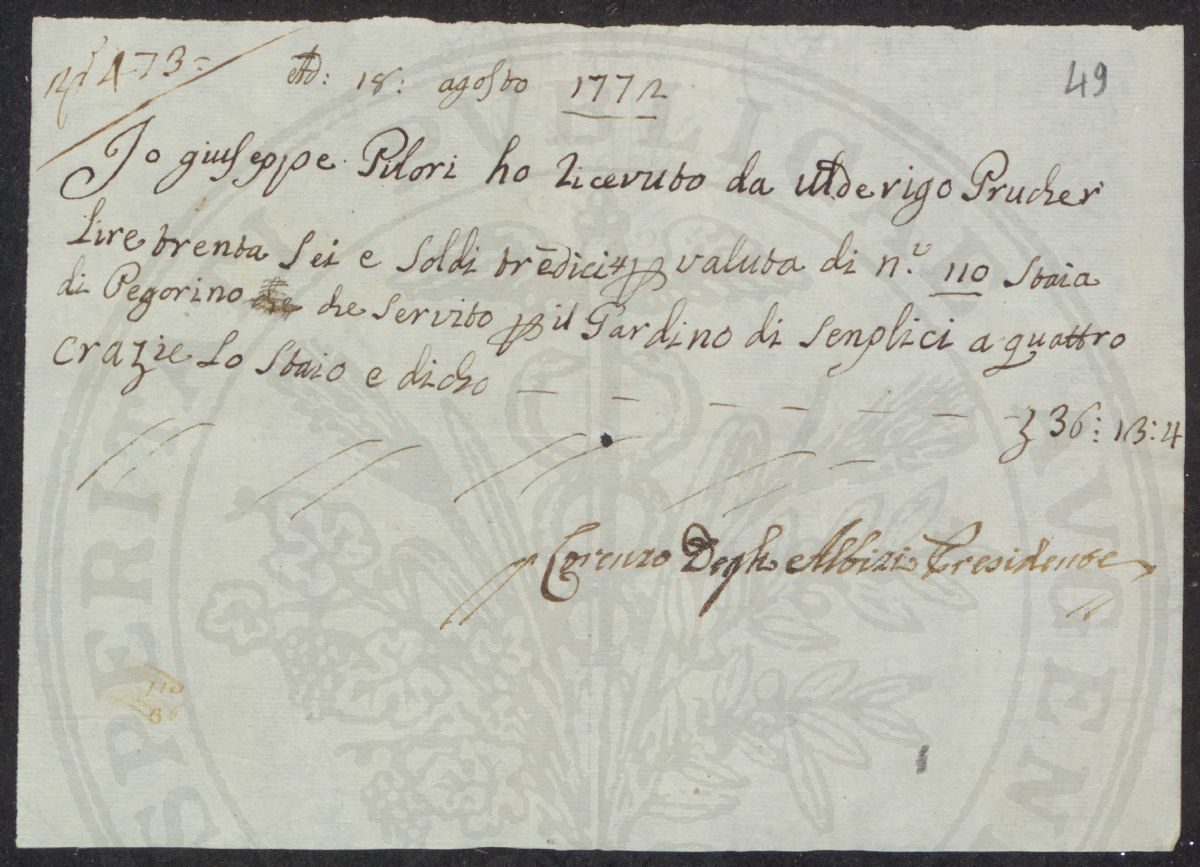 N.º 473=
Ad: 18: agosto 1772
49
Io giuseppe Pilori ho ricevuto da Ulderigo Prucher
Lire trenta Sei e Soldi trēdici 4 p valuta di n.º 110 Staia
di Pegorino che servito p il Gardino di Senplici a quattro
crazie Lo Staio e dicho — — — — — — —
£ 36: 13: 4
Lorenzo Degli Albizi Presidente
110
SPERITATI PUBLICAE AUGEN